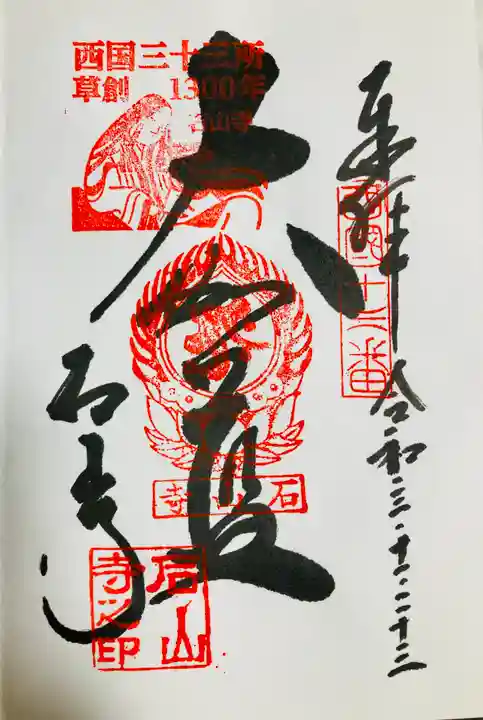 奉拝
西国十三番
令和三・十二・二十三
西国三十三所
草創 1300年
石山寺
大伽藍
石山寺
石山寺
石山寺之印